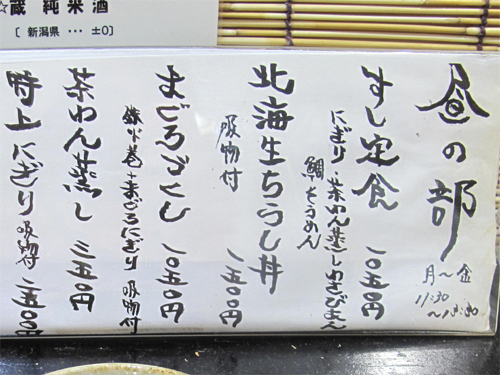 ☆蔵 純米酒
[ 新潟県 … ±0]
昼の部
月〜金
11:30
〜13:30
すし定食 一〇五〇円
にぎり・茶わん蒸し
鯛そうめん
北海生ちらし丼
吸物付 一五〇〇円
まぐろづくし 一〇五〇円
鉄火巻+まぐろにぎり 吸物付
茶わん蒸し 三五〇円
特上にぎり 吸物付 二五〇〇円